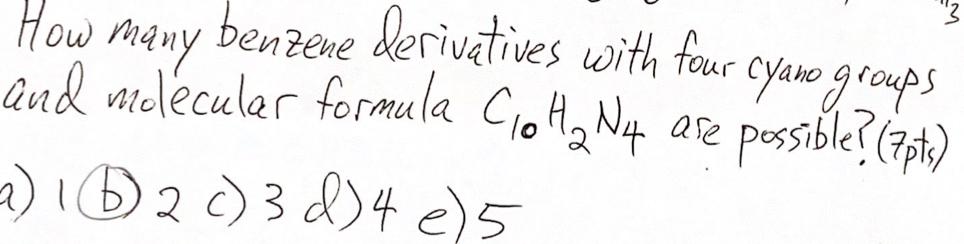 How many benzene derivatives with four cyano groups
and molecular formula C₁₀H₂N₄ are possible? (7pts)
a) 1 b) 2 c) 3 d) 4 e) 5